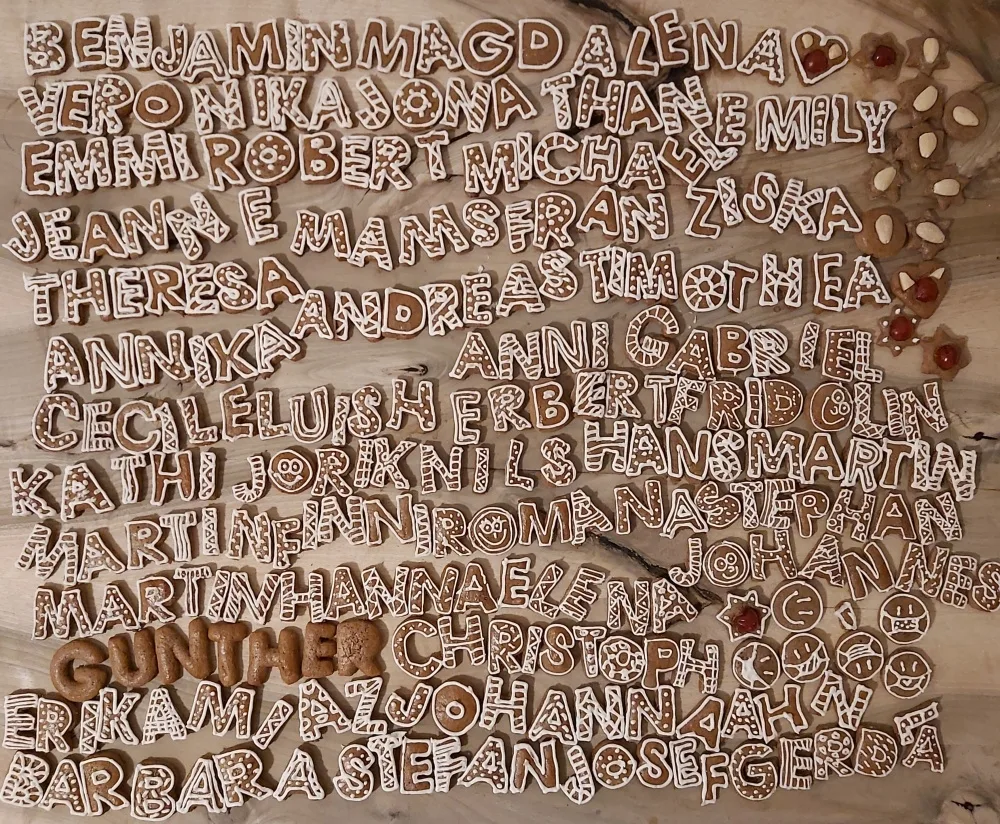 BENJAMIN MAGDALENA
VERONIKA JONATHAN EMILY
EMMI ROBERT MICHAEL
JEANNE MAMS FRANZISKA
THERESA ANDREAS TIMO THEA
ANNIKA ANNI GABRIEL
CECILE LUIS HERBERT FRIDOLIN
KATHI JORIK NILS HANS MARTIN
MARTIN FINNI ROMANA STEPHAN
MARTIN HANNA ELENA JOHANNES
GUNTHER CHRISTOPH
ERIKA MIA Z JOHANNA AHN
BARBARA STEFAN JOSEF GERDA